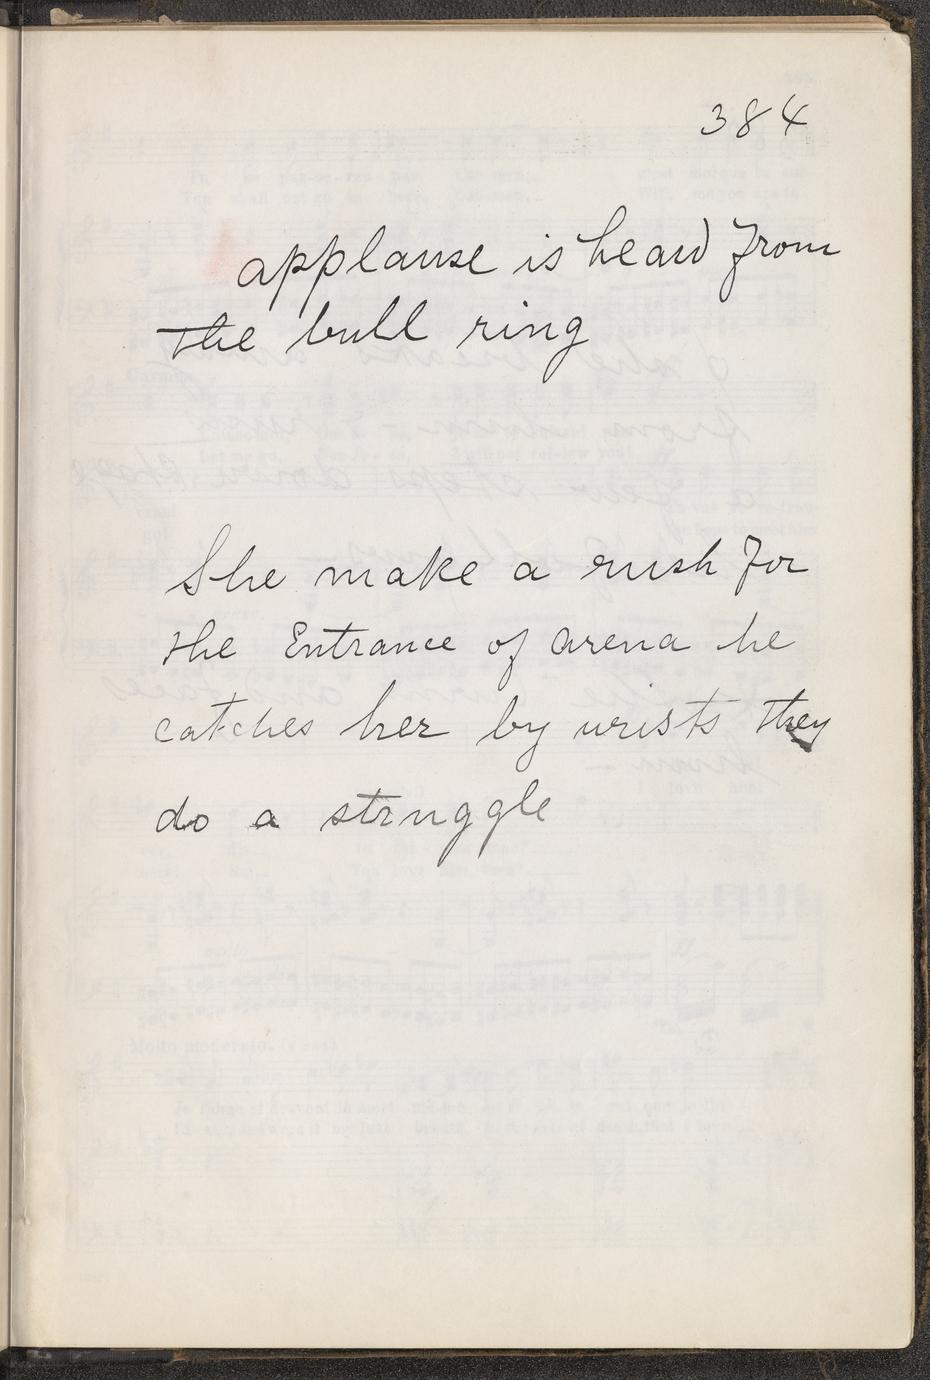 384
applause is heard from
the bull ring
She make a rush for
the Entrance of arena he
catches her by wrists they
do a struggle